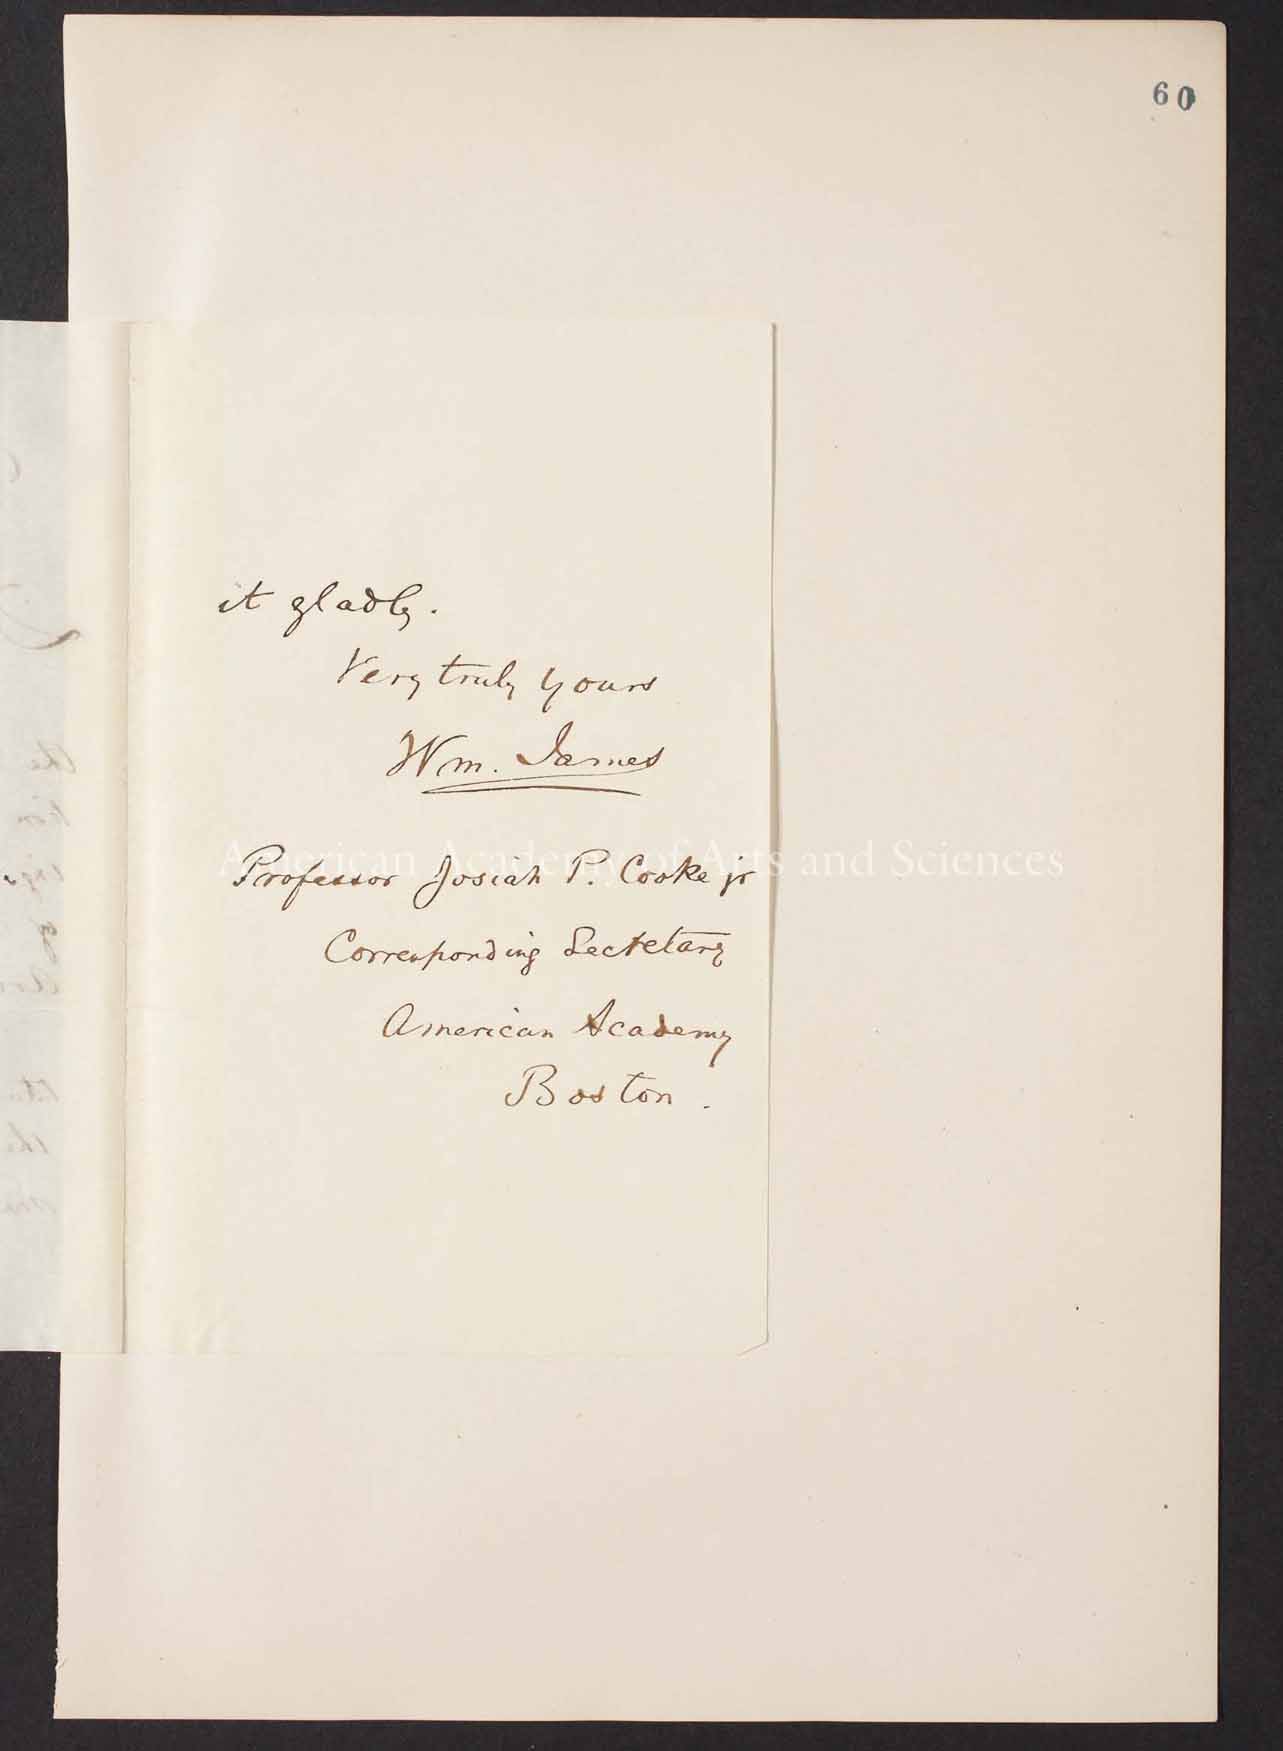 60
it gladly.
Very truly yours
Wm. James
American Academy of Arts and Sciences
Professor Josiah P. Cooke jr
Corresponding Secretary
American Academy
Boston.